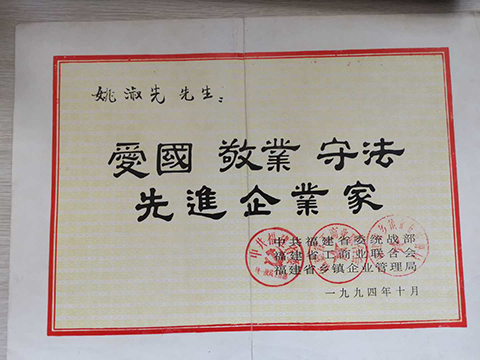 姚淑先 先生:
愛國 敬業 守法
先進企業家
中共福建省委统战部
福建省工商业联合会
福建省乡镇企业管理局
一九九四年十月